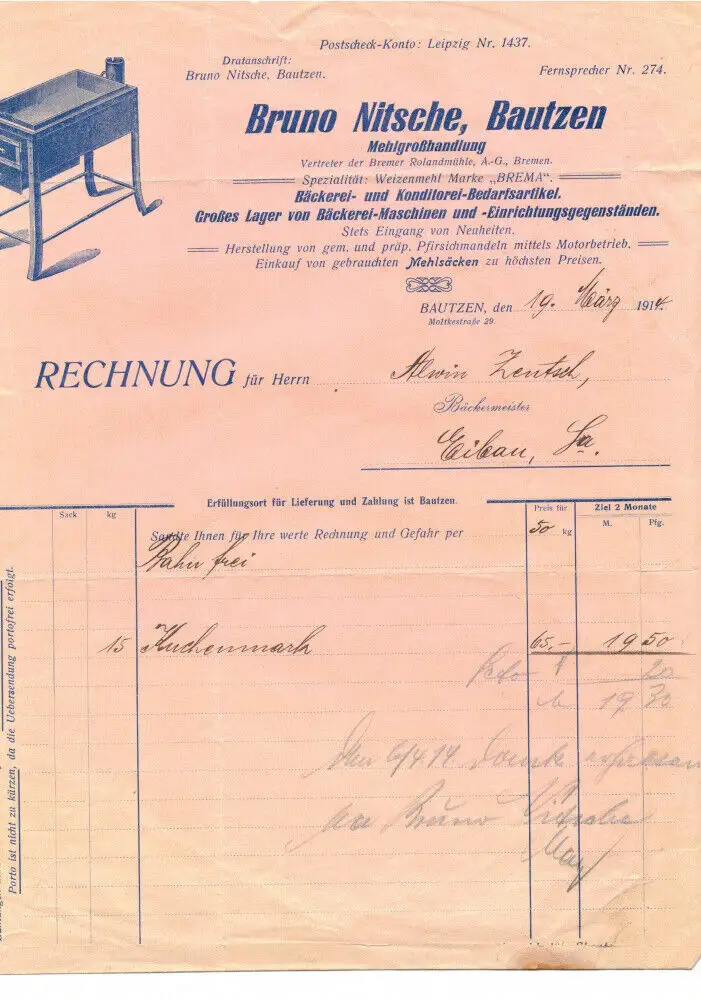 Postscheck-Konto: Leipzig Nr. 1437.
Dratanschrift:
Bruno Nitsche, Bautzen.
Fernsprecher Nr. 274.
Bruno Nitsche, Bautzen
Mehlgroßhandlung
Vertreter der Bremer Rolandmühle, A.-G., Bremen.
Spezialität: Weizenmehl Marke „BREMA".
Bäckerei- und Konditorei-Bedarfsartikel.
Großes Lager von Bäckerei-Maschinen und -Einrichtungsgegenständen.
Stets Eingang von Neuheiten.
Herstellung von gem. und präp. Pfirsichmandeln mittels Motorbetrieb.
Einkauf von gebrauchten Mehlsäcken zu höchsten Preisen.
BAUTZEN, den 19. März 1914.
Moltkestraße 29.
RECHNUNG für Herrn Alwin Zentsch,
Bäckermeister
Eibau, Sa.
Erfüllungsort für Lieferung und Zahlung ist Bautzen.
Sack kg Preis für Ziel 2 Monate
50 kg M. Pfg.
Sandte Ihnen für Ihre werte Rechnung und Gefahr per
Bahn frei
15 Kuchenmark 65,- 19 50
20
19 30
Den 6/4.14 Dank
Bruno Nitsche
Porto ist nicht zu kürzen, da die Uebersendung portofrei erfolgt.